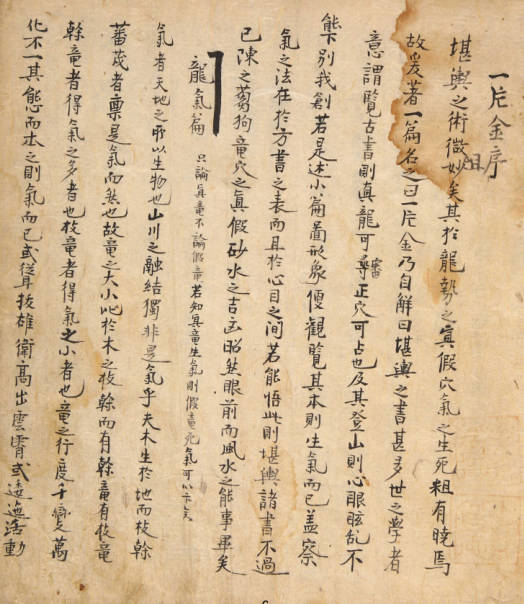 一片金序
堪輿之術微妙矣其於龍勢之眞假穴氣之生死粗有曉焉
故爰著一篇名之曰一片金乃自解曰堪輿之書甚多世之學者
意謂覽古書則眞龍可尋審正穴可占也及其登山則心眼眩乱不
能下別我創若是述小篇啚形象便觀覽其本則生氣而已盖察
氣之法在於方書之表而且於心目之间若能悟此則堪輿諸書不過
已陳之蒭狗竜穴之眞假砂水之吉凶昭然眼前而風水之能事畢矣
龍氣篇 只論眞竜不論假竜若知眞竜生氣則假竜死氣可以知矣
氣者天地之所以生物也山川之融結獨非是氣乎夫木生於地而枝榦
蕃茂者禀是氣而然也故竜之大小比於木之枝榦而有榦竜有枝竜
榦竜者得氣之多者也枝竜者得氣之小者也竜之行度千變萬
化不一其態而本之則氣而已或聳拔雄衛高出雲霄或逶迤活動